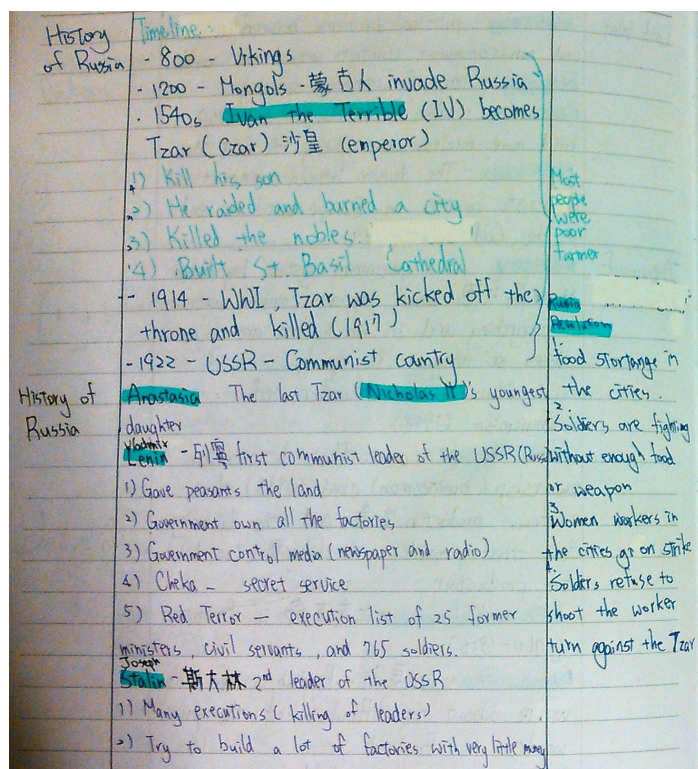 History
of Russia
Timeline:
- 800 - Vikings
- 1200 - Mongols - 蒙古人 invade Russia
- 1540s Ivan the Terrible (IV) becomes
Tzar (Czar) 沙皇 (emperor)
1) Kill his son
2) He raided and burned a city
3) Killed the nobles.
4) Built St. Basil Cathedral
- 1914 - WWI, Tzar was kicked off the
throne and killed (1917)
- 1922 - USSR - Communist country
History of
Russia
Anastasia The last Tzar (Nicholas II)'s youngest
daughter
Vladmir
Lenin - 列寧 first communist leader of the USSR (Russ
1) Gave peasants the land
2) Government own all the factories
3) Government control media (newspaper and radio)
4) Cheka - secret service
5) Red Terror - execution list of 25 former
ministers, civil servants, and 765 soldiers.
Joseph
Stalin - 斯大林 2nd leader of the USSR
1) Many executions (killing of leaders)
2) Try to build a lot of factories with very little money
Most
people
were
poor
farmer
Russia
Revolution
food shortange in
the cities.
2
Soldiers are fighting
without enough food
or weapon
3
Women workers in
the cities go on strike
Soldiers refuse to
shoot the worker
turn against the Tzar